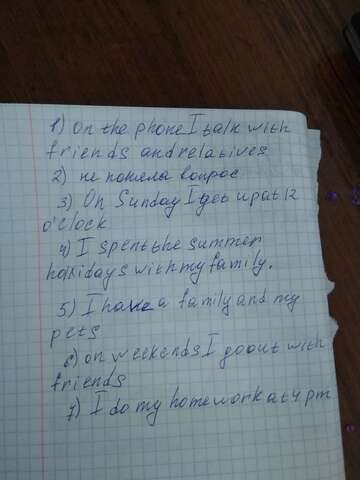 1) On the phone I talk with
friends and relatives
2) не поняла вопрос
3) On Sunday I get up at 12
o'clock
4) I spent the summer
holidays with my family.
5) I have a family and my
pets
6) on weekends I go out with
friends
7) I do my homework at 4 pm